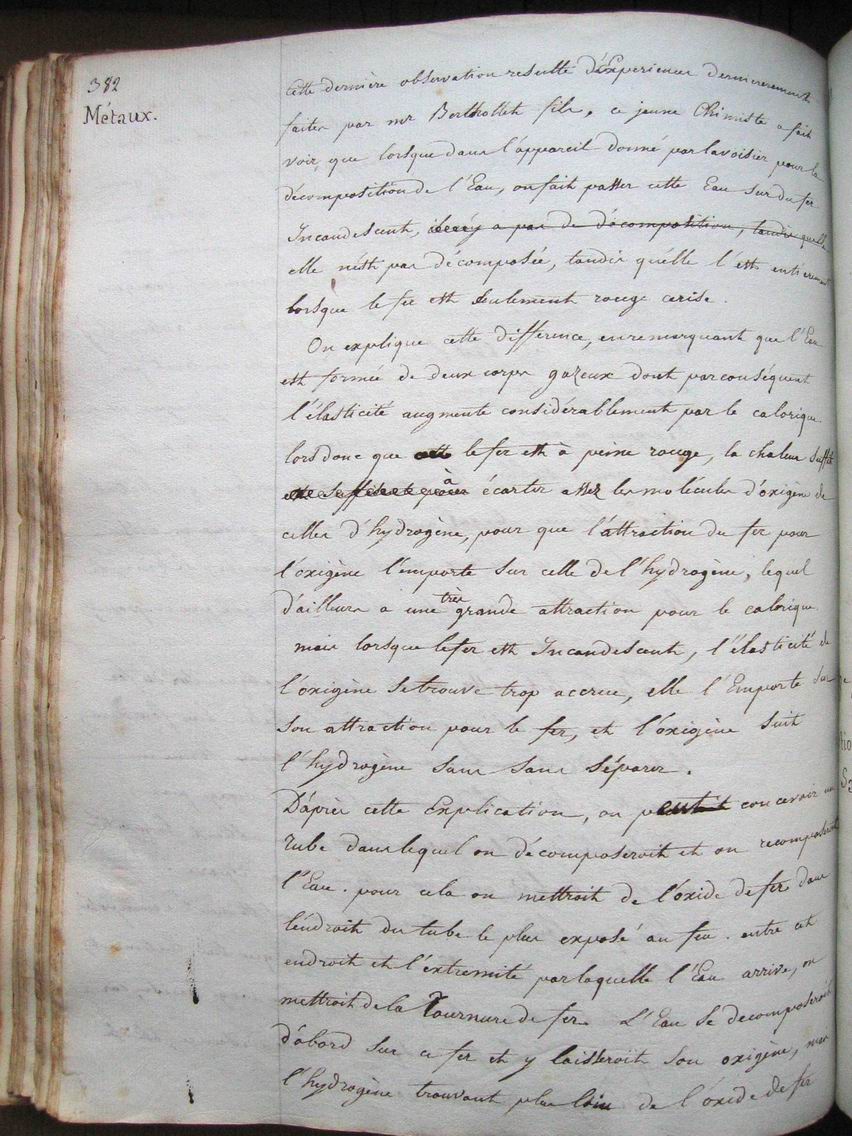 382
Métaux.
Cette dernière observation resulte d'Experiences dernierement
faites par mr Berthollet fils, ce jeune Chimiste a fait
voir, que lorsque dans l'appareil donné par lavoisier pour la
décomposition de l'Eau, on fait passer cette Eau sur du fer
Incandescent, il n'y a pas de décomposition, tandis quelle
elle n'est pas décomposée, tandis qu'elle l'est entierement
lorsque le fer est seulement rouge cerise.
On explique cette difference, en remarquant que l'Eau
est formée de deux corps gazeux dont par conséquent
l'élasticité augmente considérablement par le calorique
lors donc que le fer est à peine rouge, la chaleur suffit
à écarter assez les molécules d'oxigène de
celles d'hydrogène, pour que l'attraction du fer pour
l'oxigène l'emporte sur celle de l'hydrogène, lequel
d'ailleurs a une tres grande attraction pour le calorique.
mais lorsque le fer est Incandescent, l'élasticité de
l'oxigène se trouve trop accrue, elle l'Emporte sur
son attraction pour le fer, et l'oxigène suit
l'hydrogène sans s'en séparer.
D'après cette Explication, on peut concevoir un
tube dans lequel on décomposeroit et on recomposeroit
l'Eau. pour cela on mettroit de l'oxide de fer dans
l'endroit du tube le plus exposé au feu. entre cet
endroit et l'extremité par laquelle l'Eau arrive, on
mettroit de la Tournure de fer. L'Eau se decomposeroit
d'abord sur ce fer et y laisseroit son oxigène, mais
l'hydrogène trouvant plus loin de l'oxide de fer